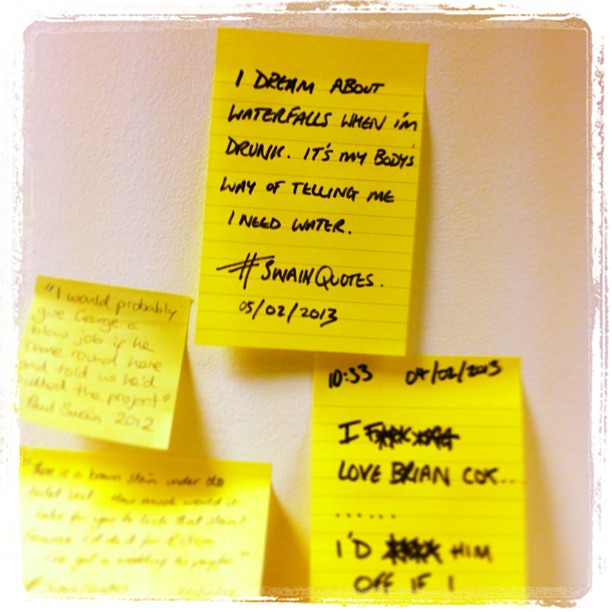 I DREAM ABOUT
WATERFALLS WHEN I'M
DRUNK. IT'S MY BODY'S
WAY OF TELLING ME
I NEED WATER.
#SWAINQUOTES.
05/02/2013
"I would probably
give George a
blow job if he
came round here
and told us he'd
the project"
Paul Swain 2012
10:33 04/02/2013
I
LOVE BRIAN COX...
......
I'D HIM
OFF IF I
There is a brown stain under the
toilet seat. How much would it
take for you to lick that stain?
I'd do it for
I've got a wedding to pay for"